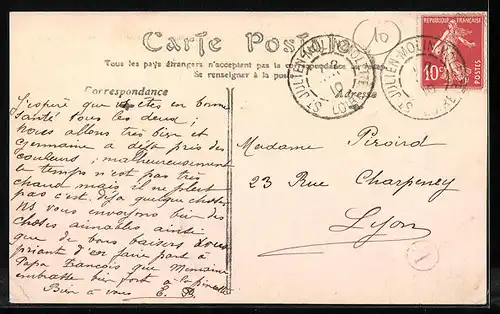 Carte Postale
Tous les pays étrangers n'acceptent pas la correspondance au recto.
Se renseigner à la poste
Correspondance
Adresse
10
REPUBLIQUE FRANÇAISE
10
ST JULIEN-MOLIN-MOLETTE
LOIRE
J'espère que vs êtes en bonne
santé tous les deux ;
nous allons très bien et
Germaine a déjà pris des
couleurs ; malheureusement
le temps n'est pas très
chaud mais il ne pleut
pas c'est déjà quelque chose
Ns vous envoyons bien des
choses aimables ainsi
que de bons baisers vous
priant d'en faire part à
Papa François que Germaine
embrasse bien fort
Bien à vous E. P.
Madame Piroird
23 Rue Charpeney
Lyon
1